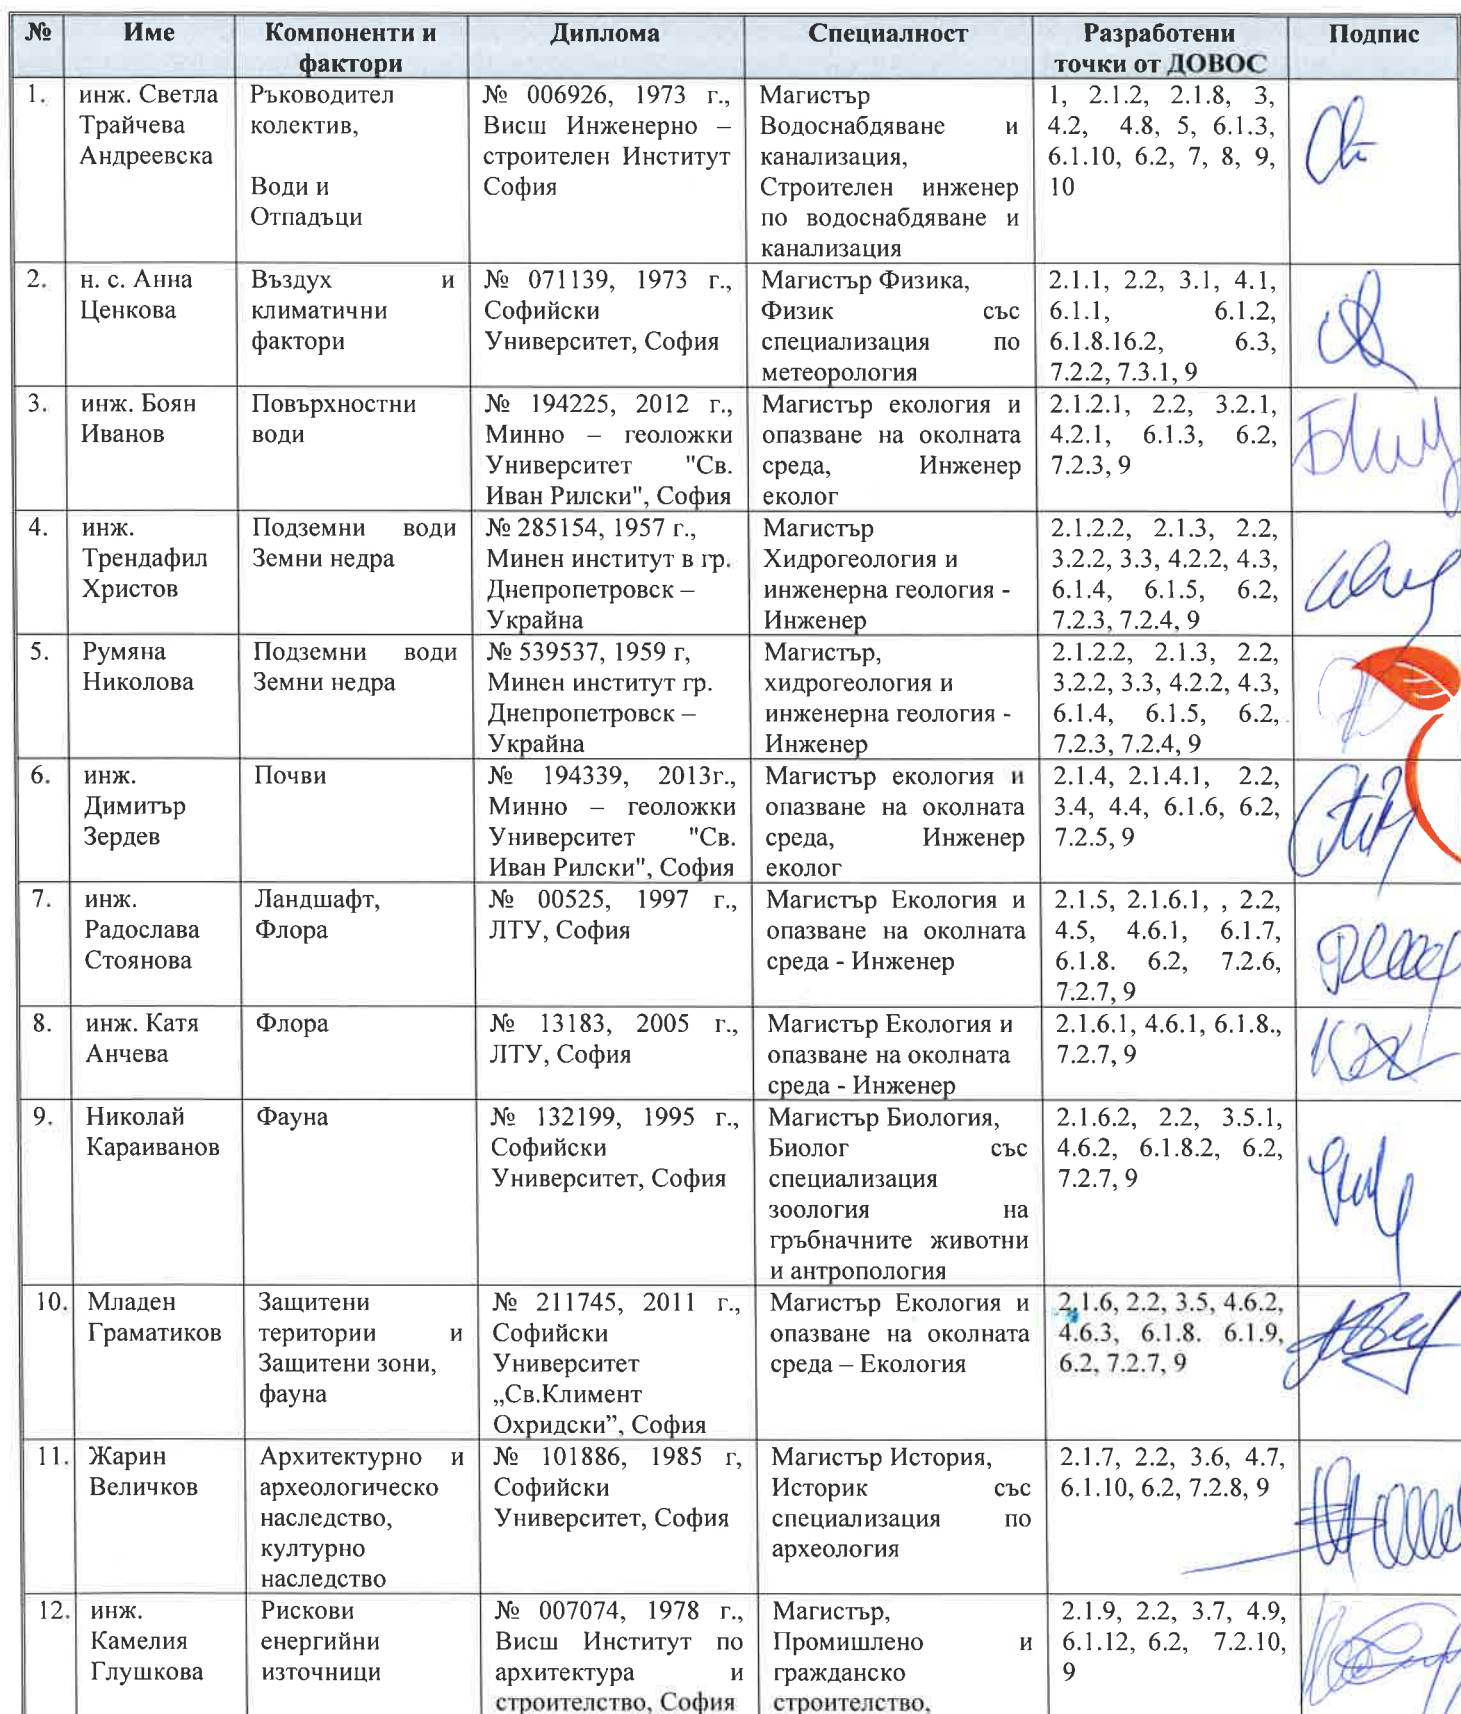 № Име Компоненти и фактори Диплома Специалност Разработени точки от ДОВОС Подпис
1. инж. Светла Трайчева Андреевска
Ръководител
колектив,
Води и
Отпадъци
№ 006926, 1973 г.,
Висш Инженерно –
строителен Институт
София
Магистър
Водоснабдяване и
канализация,
Строителен инженер
по водоснабдяване и
канализация
1, 2.1.2, 2.1.8, 3,
4.2, 4.8, 5, 6.1.3,
6.1.10, 6.2, 7, 8, 9,
10
2. н. с. Анна
Ценкова
Въздух и
климатични
фактори
№ 071139, 1973 г.,
Софийски
Университет, София
Магистър Физика,
Физик със
специализация по
метеорология
2.1.1, 2.2, 3.1, 4.1,
6.1.1, 6.1.2,
6.1.8.16.2, 6.3,
7.2.2, 7.3.1, 9
3. инж. Боян
Иванов
Повърхностни
води
№ 194225, 2012 г.,
Минно – геоложки
Университет "Св.
Иван Рилски", София
Магистър екология и
опазване на околната
среда, Инженер
еколог
2.1.2.1, 2.2, 3.2.1,
4.2.1, 6.1.3, 6.2,
7.2.3, 9
4. инж.
Трендафил
Христов
Подземни води
Земни недра
№ 285154, 1957 г.,
Минен институт в гр.
Днепропетровск –
Украйна
Магистър
Хидрогеология и
инженерна геология -
Инженер
2.1.2.2, 2.1.3, 2.2,
3.2.2, 3.3, 4.2.2, 4.3,
6.1.4, 6.1.5, 6.2,
7.2.3, 7.2.4, 9
5. Румяна
Николова
Подземни води
Земни недра
№ 539537, 1959 г,
Минен институт гр.
Днепропетровск –
Украйна
Магистър,
хидрогеология и
инженерна геология -
Инженер
2.1.2.2, 2.1.3, 2.2,
3.2.2, 3.3, 4.2.2, 4.3,
6.1.4, 6.1.5, 6.2,
7.2.3, 7.2.4, 9
6. инж.
Димитър
Зердев
Почви
№ 194339, 2013г.,
Минно – геоложки
Университет "Св.
Иван Рилски", София
Магистър екология и
опазване на околната
среда, Инженер
еколог
2.1.4, 2.1.4.1, 2.2,
3.4, 4.4, 6.1.6, 6.2,
7.2.5, 9
7. инж.
Радослава
Стоянова
Ландшафт,
Флора
№ 00525, 1997 г.,
ЛТУ, София
Магистър Екология и
опазване на околната
среда - Инженер
2.1.5, 2.1.6.1, , 2.2,
4.5, 4.6.1, 6.1.7,
6.1.8. 6.2, 7.2.6,
7.2.7, 9
8. инж. Катя
Анчева
Флора
№ 13183, 2005 г.,
ЛТУ, София
Магистър Екология и
опазване на околната
среда - Инженер
2.1.6.1, 4.6.1, 6.1.8.,
7.2.7, 9
9. Николай
Караиванов
Фауна
№ 132199, 1995 г.,
Софийски
Университет, София
Магистър Биология,
Биолог със
специализация
зоология на
гръбначните животни
и антропология
2.1.6.2, 2.2, 3.5.1,
4.6.2, 6.1.8.2, 6.2,
7.2.7, 9
10. Младен
Граматиков
Защитени
територии и
Защитени зони,
фауна
№ 211745, 2011 г.,
Софийски
Университет
„Св.Климент
Охридски”, София
Магистър Екология и
опазване на околната
среда – Екология
2.1.6, 2.2, 3.5, 4.6.2,
4.6.3, 6.1.8. 6.1.9,
6.2, 7.2.7, 9
11. Жарин
Величков
Архитектурно и
археологическо
наследство,
културно
наследство
№ 101886, 1985 г,
Софийски
Университет, София
Магистър История,
Историк със
специализация по
археология
2.1.7, 2.2, 3.6, 4.7,
6.1.10, 6.2, 7.2.8, 9
12. инж.
Камелия
Глушкова
Рискови
енергийни
източници
№ 007074, 1978 г.,
Висш Институт по
архитектура и
строителство, София
Магистър,
Промишлено и
гражданско
строителство,
2.1.9, 2.2, 3.7, 4.9,
6.1.12, 6.2, 7.2.10,
9